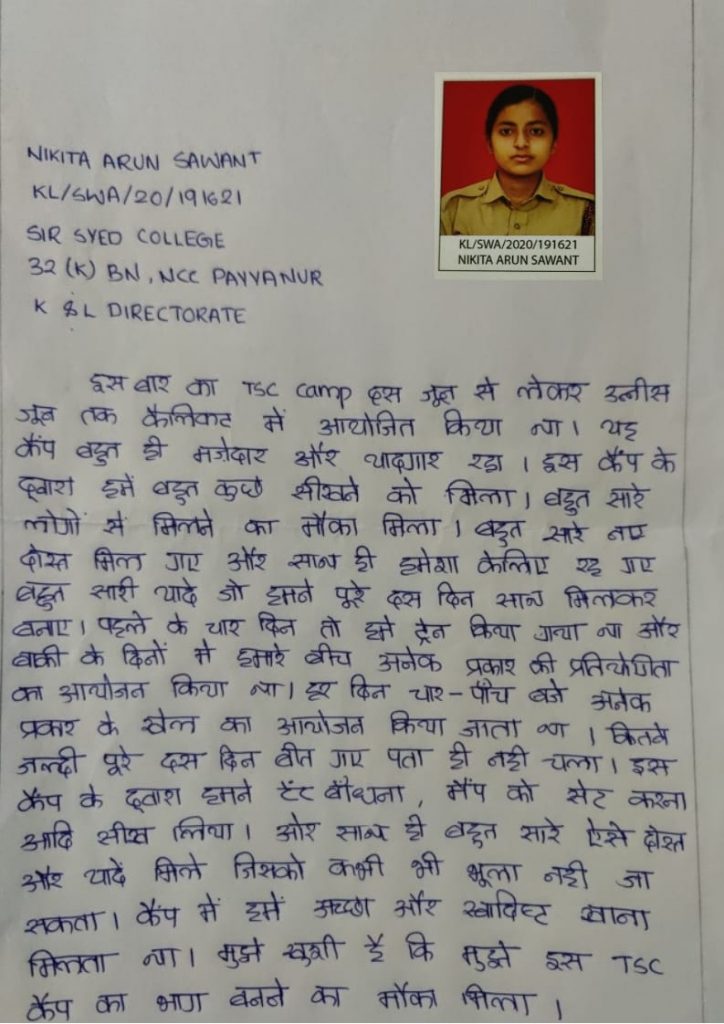 KL/SWA/2020/191621
NIKITA ARUN SAWANT
NIKITA ARUN SAWANT
KL/SWA/20/191621
SIR SYED COLLEGE
32 (K) BN, NCC PAYYANUR
K & L DIRECTORATE
इस बार का TSC camp दस जून से लेकर उन्नीस
जून तक कैलिकट में आयोजित किया था। यह
कैंप बहुत ही मजेदार और यादगार रहा। इस कैंप के
द्वारा हमें बहुत कुछ सीखने को मिला। बहुत सारे
लोगों से मिलने का मौका मिला। बहुत सारे नए
दोस्त मिल गए और साथ ही हमेशा केलिए रह गए
बहुत सारी यादे जो हमने पूरे दस दिन साथ मिलकर
बनाए। पहले के चार दिन तो हमे ट्रेन किया गया था और
बाकी के दिनों मे हमारे बीच अनेक प्रकार की प्रतियोगिता
का आयोजन किया था। हर दिन चार-पाँच बजे अनेक
प्रकार के खेल का आयोजन किया जाता था। कितने
जल्दी पूरे दस दिन बीत गए पता ही नही चला। इस
कैंप के द्वारा हमने टेंट बाँधना, मैप को सेट करना
आदि सीख लिया। और साथ ही बहुत सारे ऐसे दोस्त
और यादें मिले जिसको कभी भी भूला नही जा
सकता। कैंप में हमें अच्छा और स्वादिष्ट खाना
मिलता था। मुझे खुशी है कि मुझे इस TSC
कैंप का भाग बनने का मौका मिला।